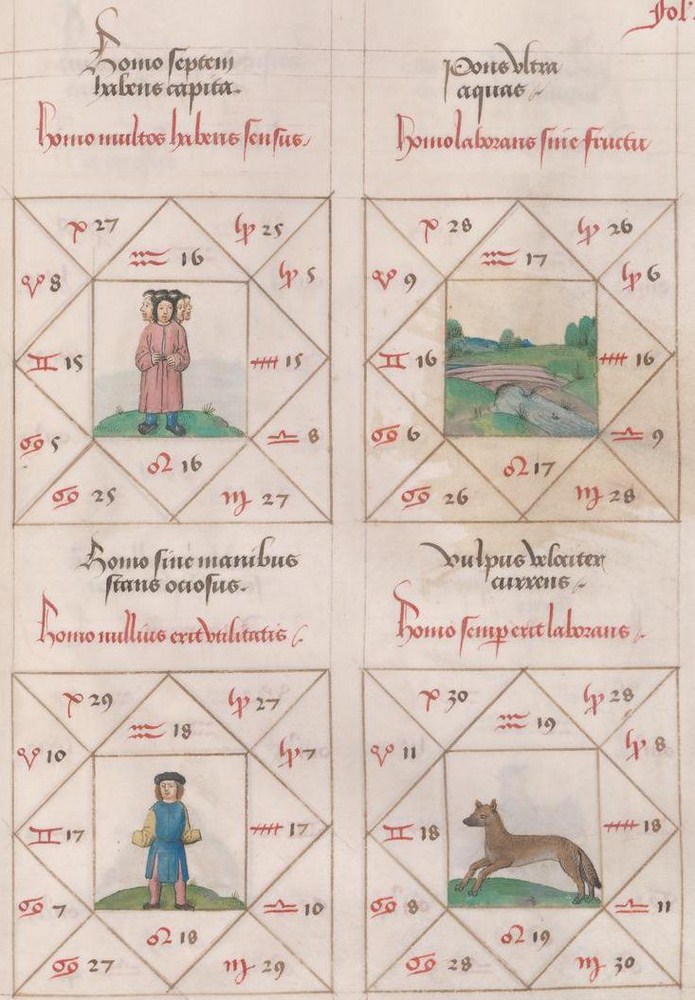 Fol.
Homo septem
habens capita.
Homo multos habens sensus.
27
25
16
8
5
15
15
5
8
16
25
27
Pons vltra
aquas
Homo laborans sine fructu
28
26
17
9
6
16
16
6
9
17
26
28
Homo sine manibus
stans ociosus.
Homo nullius erit vtilitatis
29
27
18
10
7
17
17
7
10
18
27
29
vulpus velociter
currens
Homo semp erit laborans
30
28
19
11
8
18
18
8
11
19
28
30